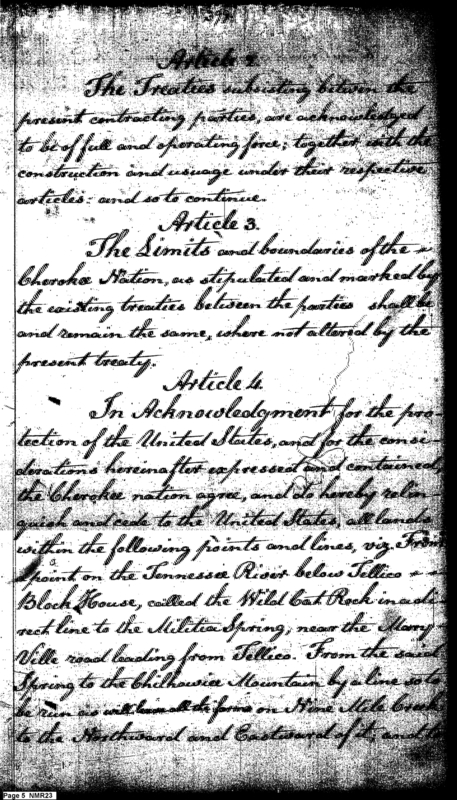 Article 2.
The Treaties subsisting between the
present contracting parties, are acknowledged
to be of full and operating force; together with the
construction and usuage under their respective
articles: and so to continue.
Article 3.
The Limits and boundaries of the
Cherokee Nation, as stipulated and marked by
the existing treaties between the parties shall be
and remain the same, where not altered by the
present treaty.
Article 4.
In Acknowledgment for the pro-
tection of the United States, and for the consi-
derations hereinafter expressed and contained,
the Cherokee nation agree, and do hereby relin-
quish and cede to the United States, all lands
within the following points and lines, viz. From
a point on the Tennessee River below Tellico
Block House, called the Wild Cat Rock in a di-
rect line to the Militia Spring, near the Mary
Ville road leading from Tellico. From the said
Spring to the Chilhowie Mountain by a line so to
be run as will leave all the farms on Nine Mile Creek
to the Northward and Eastward of it; and to
Page 5 NMR23